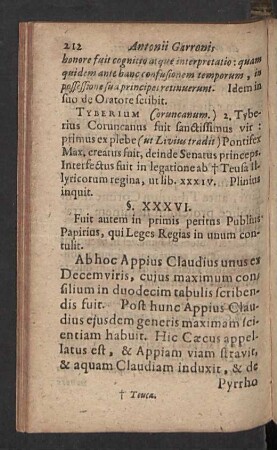 212 Antonii Garronis
honore fuit cognitio atque interpretatio: quam
quidem ante hanc confusionem temporum, in
possessione sua principes retinuerunt. Idem in
suo de Oratore scribit.
TYBERIUM Coruncanum.) 2, Tybe-
rius Coruncanus fuit sanctissimus vir :
primus ex plebe (ut Livius tradit) Pontifex
Max, creatus fuit, deinde Senatus princeps.
Interfectus fuit in legatione ab † Teusa Il-
lyricorum regina, ut lib. XXXIV. Plinius
inquit.
§. XXXVI.
Fuit autem in primis peritus Publius
Papirius, qui Leges Regias in unum con-
tulit.
Ab hoc Appius Claudius unus ex
Decemviris, cujus maximum con-
silium in duodecim tabulis scriben-
dis fuit. Post hunc Appius Clau-
dius ejusdem generis maximam sci-
entiam habuit. Hic Cæcus appel-
latus est, & Appiam viam stravit,
& aquam Claudiam induxit, & de
Pyrrho
† Teuca.